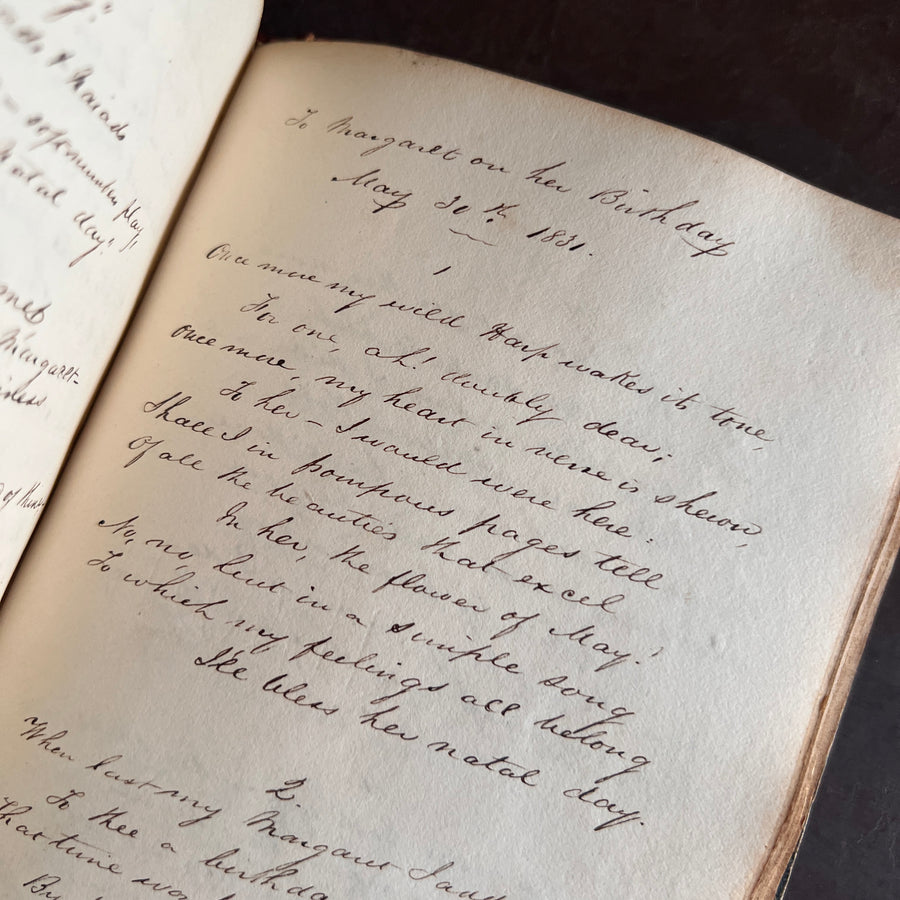 & Naiads
May,
natal day!
Margaret-
of
To Margaret on her Birthday
May 30th. 1831.
1
Once more my wild Harp wakes its tone,
For one, ah! doubly dear;
Once more, my heart in verse is shewn,
To her – I would were here.
Shall I in pompous pages tell
Of all the beauties that excel
In her, the flower of May!
No, no, but in a simple song
To which my feelings all belong
I'll bless her natal day.
2.
When last my Margaret I
To thee a birthday
That time